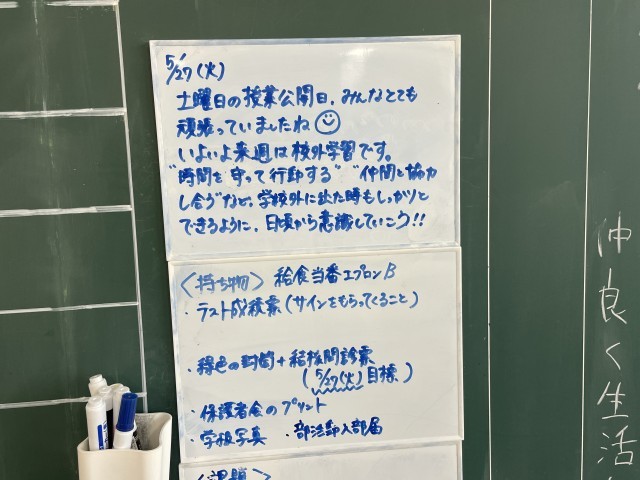 5/27(火)
土曜日の授業公開日、みんなとても
頑張っていましたね
いよいよ来週は校外学習です。
"時間を守って行動する" "仲間と協力
し合う"など、学校外に出た時もしっかりと
できるように、日頃から意識していこう!!
〈持ち物〉 給食当番エプロンB
・テスト成績票(サインをもらってくること)
・緑色の封筒+結核問診票
(5/27(火)目標)
・保護者会のプリント
・学校写真 ・部活動入部届
〈課題〉
仲良く生活